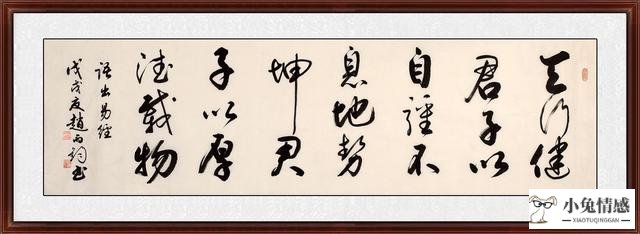 天行健
君子以
自强不
息地势
坤君
子以厚
德载物
語出易經
戊戌夏趙雨书
小兔情感
XIAOTUQINGGAN